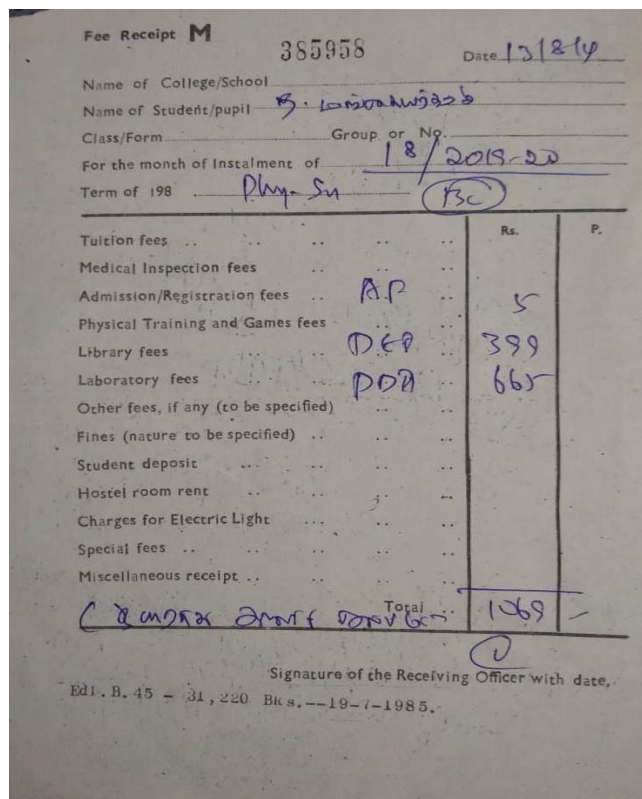 Fee Receipt M
385958
Date 13/8/
Name of College/School
Name of Student/pupil
Class/Form Group or No.
For the month of Instalment of 18/2019-20
Term of 198 Phy- BC
Rs. P.
Tuition fees .. .. .. .. ..
Medical Inspection fees .. .. ..
Admission/Registration fees .. A.P .. 5
Physical Training and Games fees .. ..
Library fees .. .. DEP .. 399
Laboratory fees .. .. .. 665
Other fees, if any (to be specified) .. ..
Fines (nature to be specified) .. .. ..
Student deposit .... .. .. ..
Hostel room rent .. .. .. ..
Charges for Electric Light ... .. ..
Special fees .. .. .. .. ..
Miscellaneous receipt .. .. .. ..
Total .. 1069 -
Signature of the Receiving Officer with date,
Edl. B. 45 - 31,220 Bks.--19-7-1985.